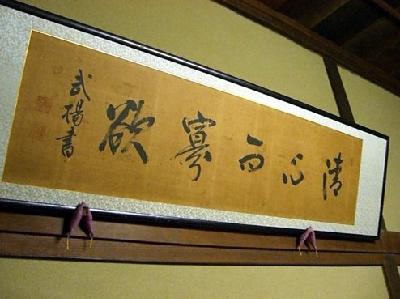 清心而寡欲
武揚書